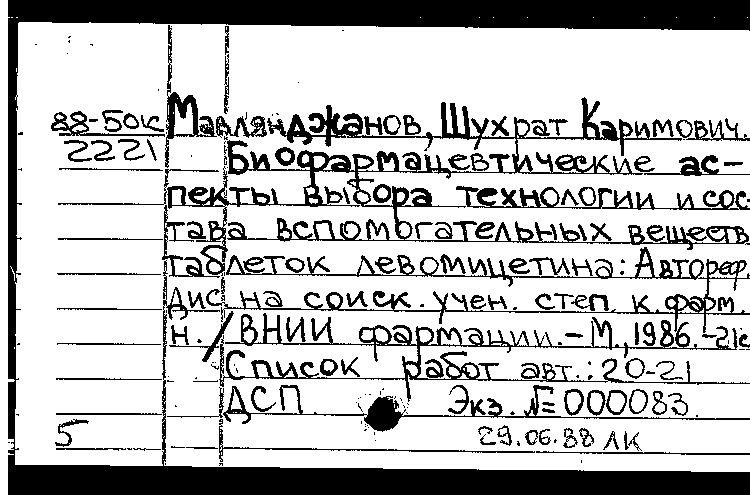 88-50к Мавлянджанов, Шухрат Каримович.
2221 Биофармацевтические ас-
пекты выбора технологии и сос-
тава вспомогательных веществ
таблеток левомицетина: Автореф.
дис на соиск. учен. степ. к. фарм.
н. / ВНИИ фармации. – М., 1986. – 21с
Список работ авт.: 20-21
ДСП Экз. №=000083.
5 29.06.88 ЛК